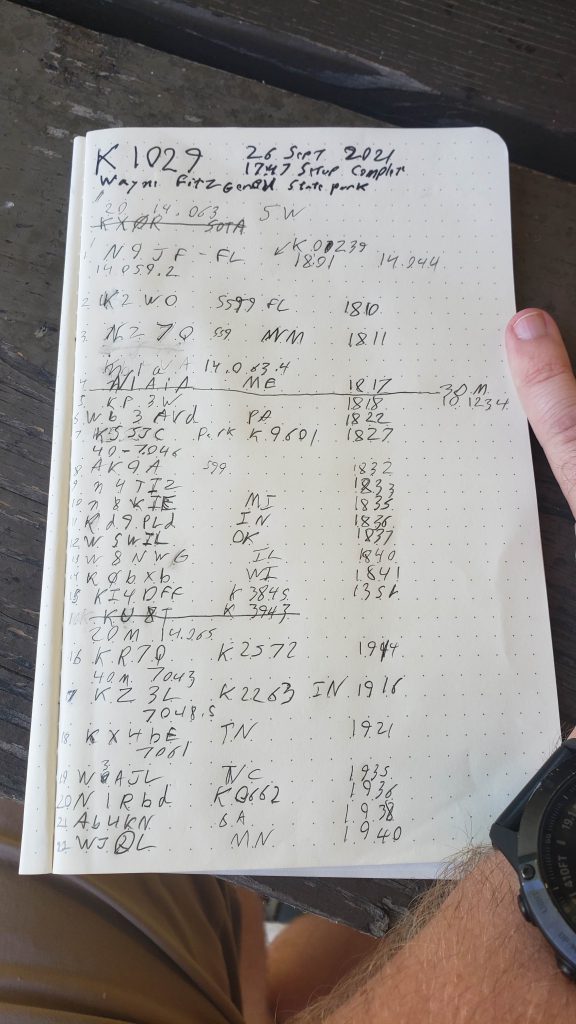 K 1029 26 Sept 2021
1747 Setup Complet
Wayne Fitzgerald State Park
20 14.063 5W
KXØR SOTA
1. N9JF - FL ↙K 01239
14059.2 1801 14.244
2. K2WO 5599 FL 1810
3. NZ7Q 559 NM 1811
N1AIA 14.063.4
4 N1AIA ME 1817 30 m
5. KP3W 1818 10.1234
6 Wb3AVd PA 1822
7 K5JJC Park K.9601 1827
40-7046
8 AK9A 599 1832
9 n4TIZ 1833
10 n8KIE MI 1835
11 Kd9PLd IN 1836
12 W5WIL OK 1837
13 W8NWG IL 1840
14 KØbXb WI 1841
15 KI4DFF K3845 1351
KU8T K 3943
20M 14.265
16 KR7Q K2572 1914
40m 7043
17 KZ3L K2263 IN 1916
7048.5
18 KX4bE TN 1921
7061
19 W3AJL NC 1935
20 N1Rbd K0662 1936
21 Ab4KN GA 1938
22 WJØL MN 1940